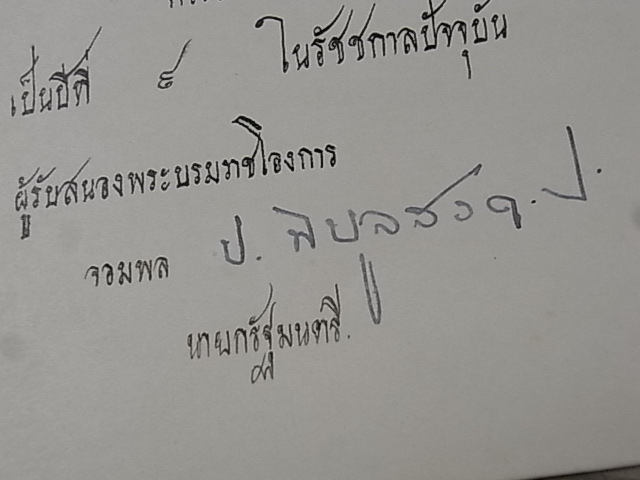 เป็นปีที่ ๙ ในรัชชกาลปัจจุบัน
ผู้รับสนองพระบรมราชโองการ
จอมพล ป. พิบูลสงคราม
นายกรัฐมนตรี.